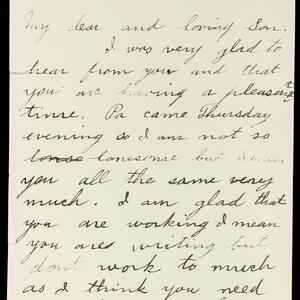 My dear and loving Son.
I was very glad to
hear from you and that
you are having a pleasant
time. Pa came Thursday
evening so I am not so
lonesome but I miss
you all the same very
much. I am glad that
you are working I mean
you are writing but
dont work to much
as I think you need